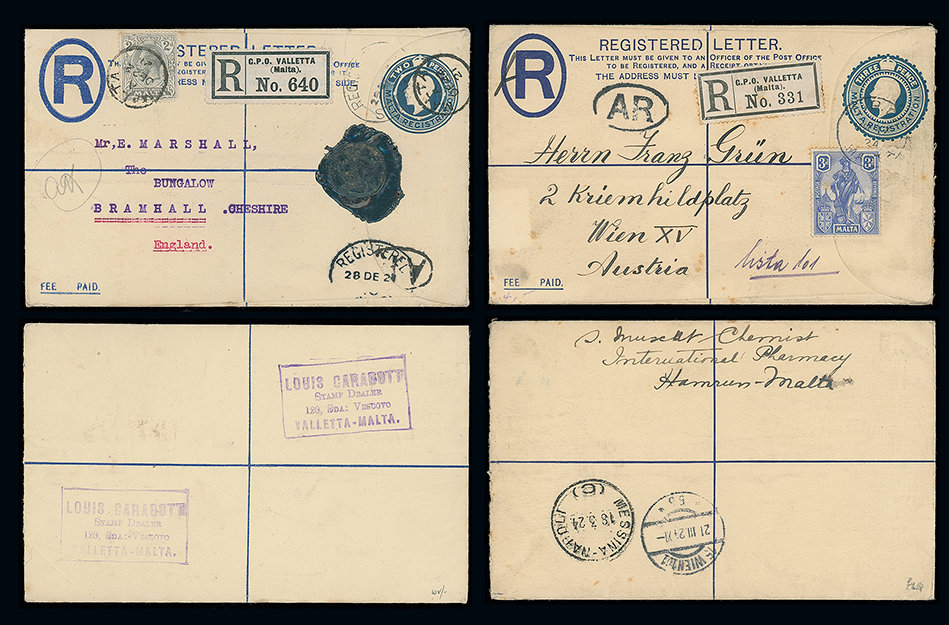 R
STERED LETTER.
G.P.O. VALLETTA
(Malta).
R No. 640
TWO
MALTA REGISTRATION
Mr, E. MARSHALL,
The
BUNGALOW
BRAMHALL .CHESHIRE
England.
REGISTERED
28 DE 2
FEE PAID.
R
REGISTERED LETTER.
THIS LETTER MUST BE GIVEN TO AN OFFICER OF THE POST OFFICE
TO BE REGISTERED, AND A RECEIPT
THE ADDRESS MUST
G.P.O. VALLETTA
(Malta).
R No. 331
THREE PENCE
MALTA REGISTRATION
AR
Herrn Franz Grün
2 Kriemhildplatz
Wien XV
Austria
MALTA
lista 101
FEE PAID.
LOUIS GARABOTT
STAMP DEALER
129, SDA: VESCOVO
VALLETTA-MALTA.
LOUIS GARABOTT
STAMP DEALER
129, SDA: VESCOVO
VALLETTA-MALTA.
S. Muscat Chemist
International Pharmacy
Hamrun-Malta
MESSINA-NAPOLI
(6)
18.3.24
WIEN 101
21.III.24